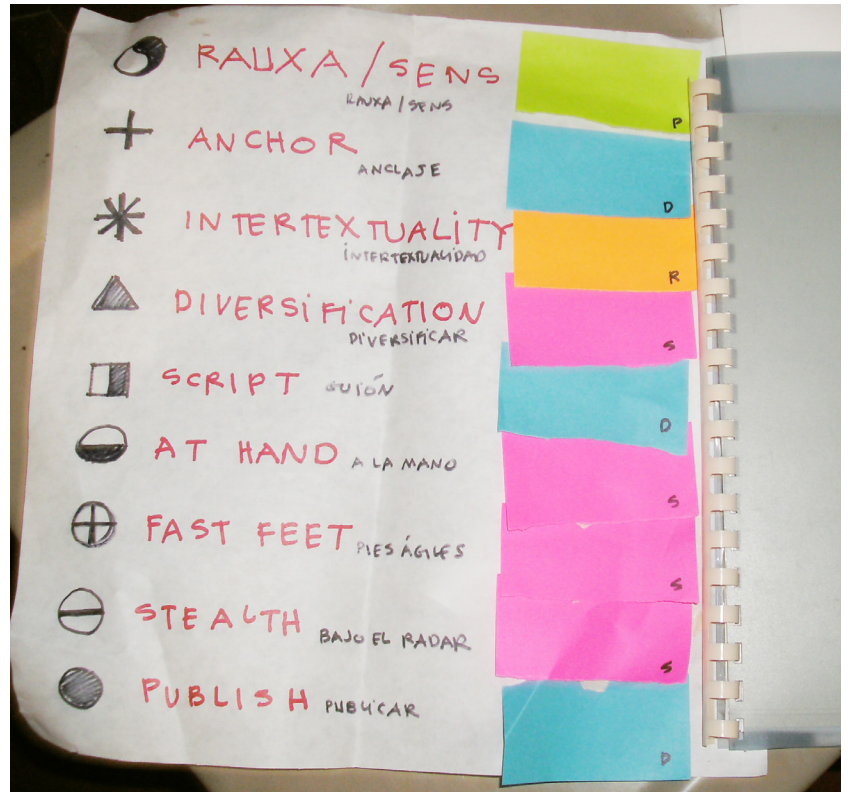 RAUXA/SENS
RAUXA/SENS
P
ANCHOR
ANCLAJE
D
INTERTEXTUALITY
INTERTEXTUALIDAD
R
DIVERSIFICATION
DIVERSIFICAR
S
SCRIPT GUIÓN
D
AT HAND A LA MANO
S
FAST FEET PIES ÁGILES
S
STEALTH BAJO EL RADAR
S
PUBLISH PUBLICAR
D